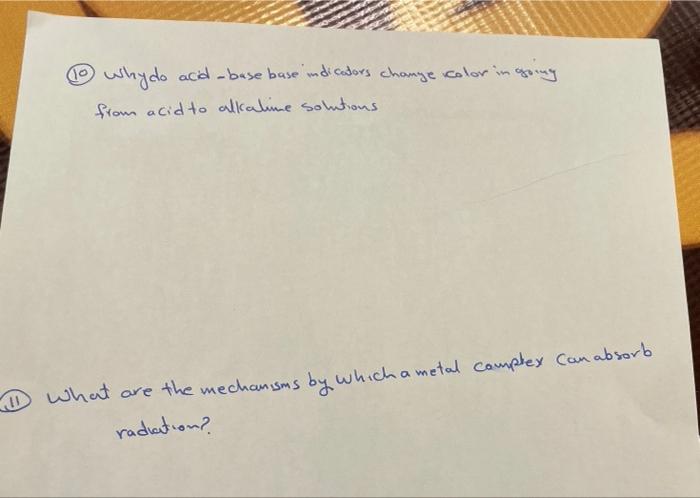 10 Why do acid-base base indicators change color in going
from acid to alkaline solutions
11 What are the mechanisms by which a metal complex can absorb
radiation?